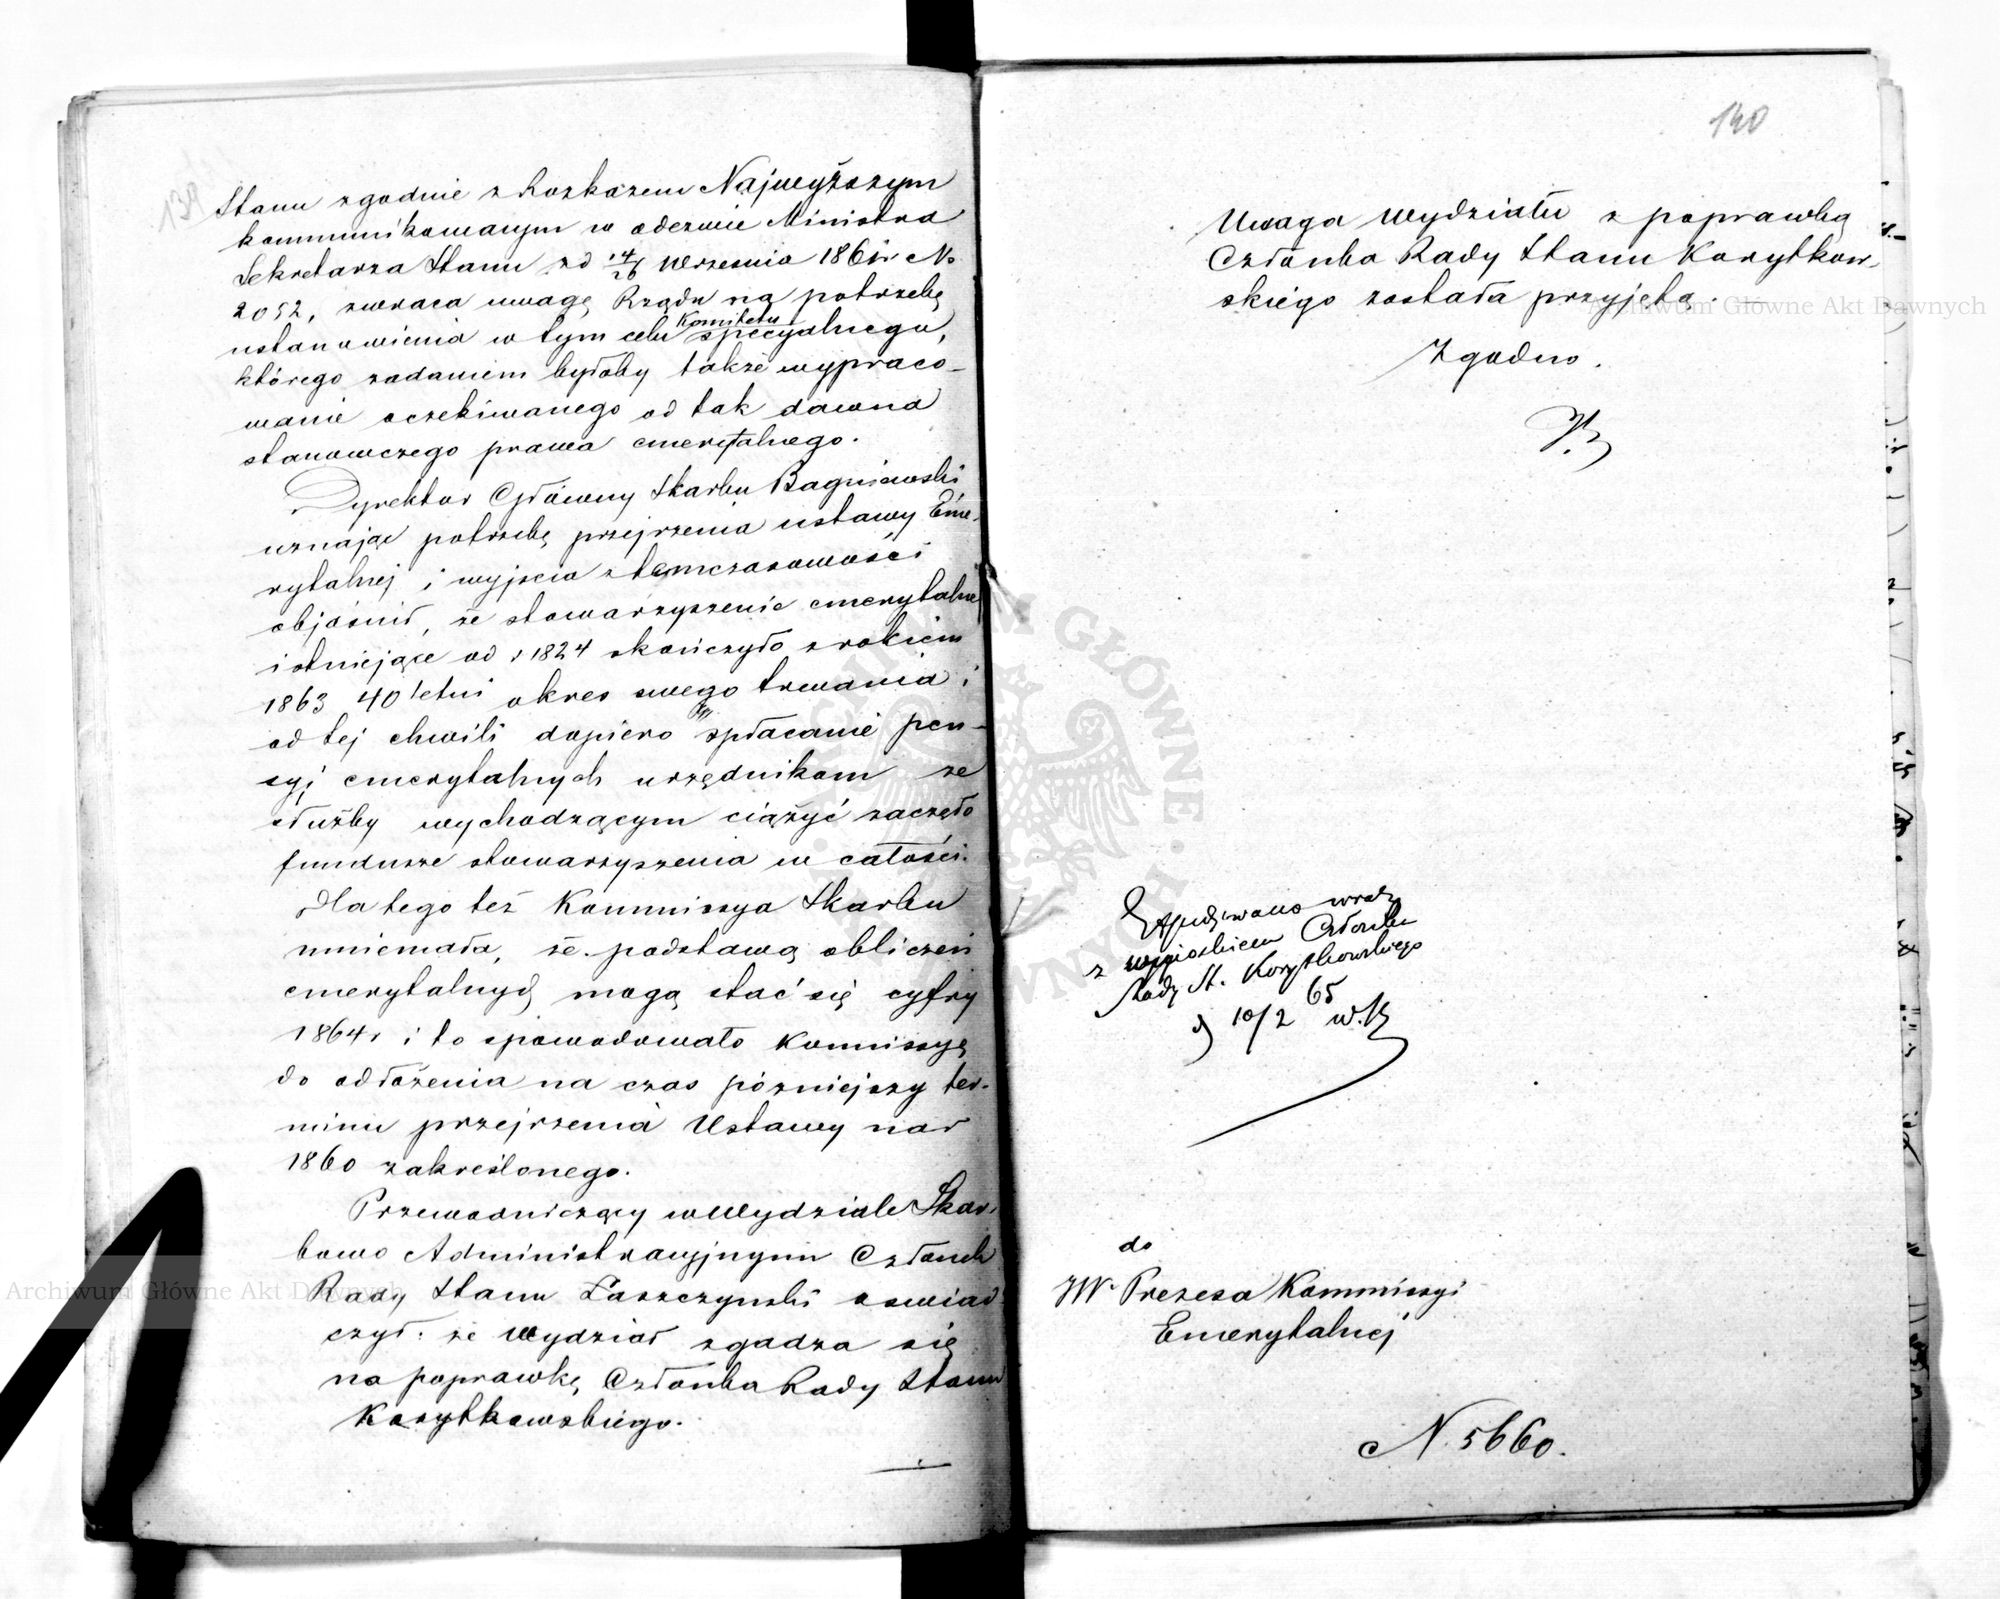 Stanu zgodnie z Rozkazem Najwyższym
kommunikowanym w odezwie Ministra
Sekretarza Stanu zd 14/26 Września 1861r No
2052, zwraca uwagę Rządu na potrzebę
ustanowienia w tym celu Komitetu specyalnego,
którego zadaniem byłoby także wypraco-
wanie oczekiwanego od tak dawna
stanowczego prawa emerytalnego.
Dyrektor Główny Skarbu Bagniewski
uznając potrzebę przejrzenia ustawy Eme-
rytalnej i wyjscia z tymczasowości
objaśnił, że stowarzyszenie emerytalne
istniejące od r 1824 skończyło z rokiem
1863 40 letni okres swego trwania i
od tej chwili dopiero spłacanie pen-
syj emerytalnych urzędnikom ze
służby wychodzącym ciążyć zaczęło
fundusze stowarzyszenia w całości.
Dla tego też Kommissya Skarbu
mniemała, że podstawą obliczeń
emerytalnych mogą stać się cyfry
1864r i to spowodowało Kommissyę
do odłożenia na czas pózniejszy ter-
minu przejrzenia Ustawy na r
1860 zakreślonego.
Przewodniczący w Wydziale Skar-
bowo Administracyjnym Członek
Rady Stanu Łaszczyński oswiad
czył: że Wydział zgadza się
na poprawkę Członka Rady Stanu
Korytkowskiego.
140
Uwaga Wydziału z poprawką
Członka Rady Stanu Korytkow-
skiego została przyjętą.
Zgodno.
z wnioskiem Członka
Rady St. Korytkowskiego
d 10/2 65
do
JW. Prezesa Kommissyi
Emerytalnej
N. 5660.
Archiwum Główne Akt Dawnych
Archiwum Główne Akt Dawnych